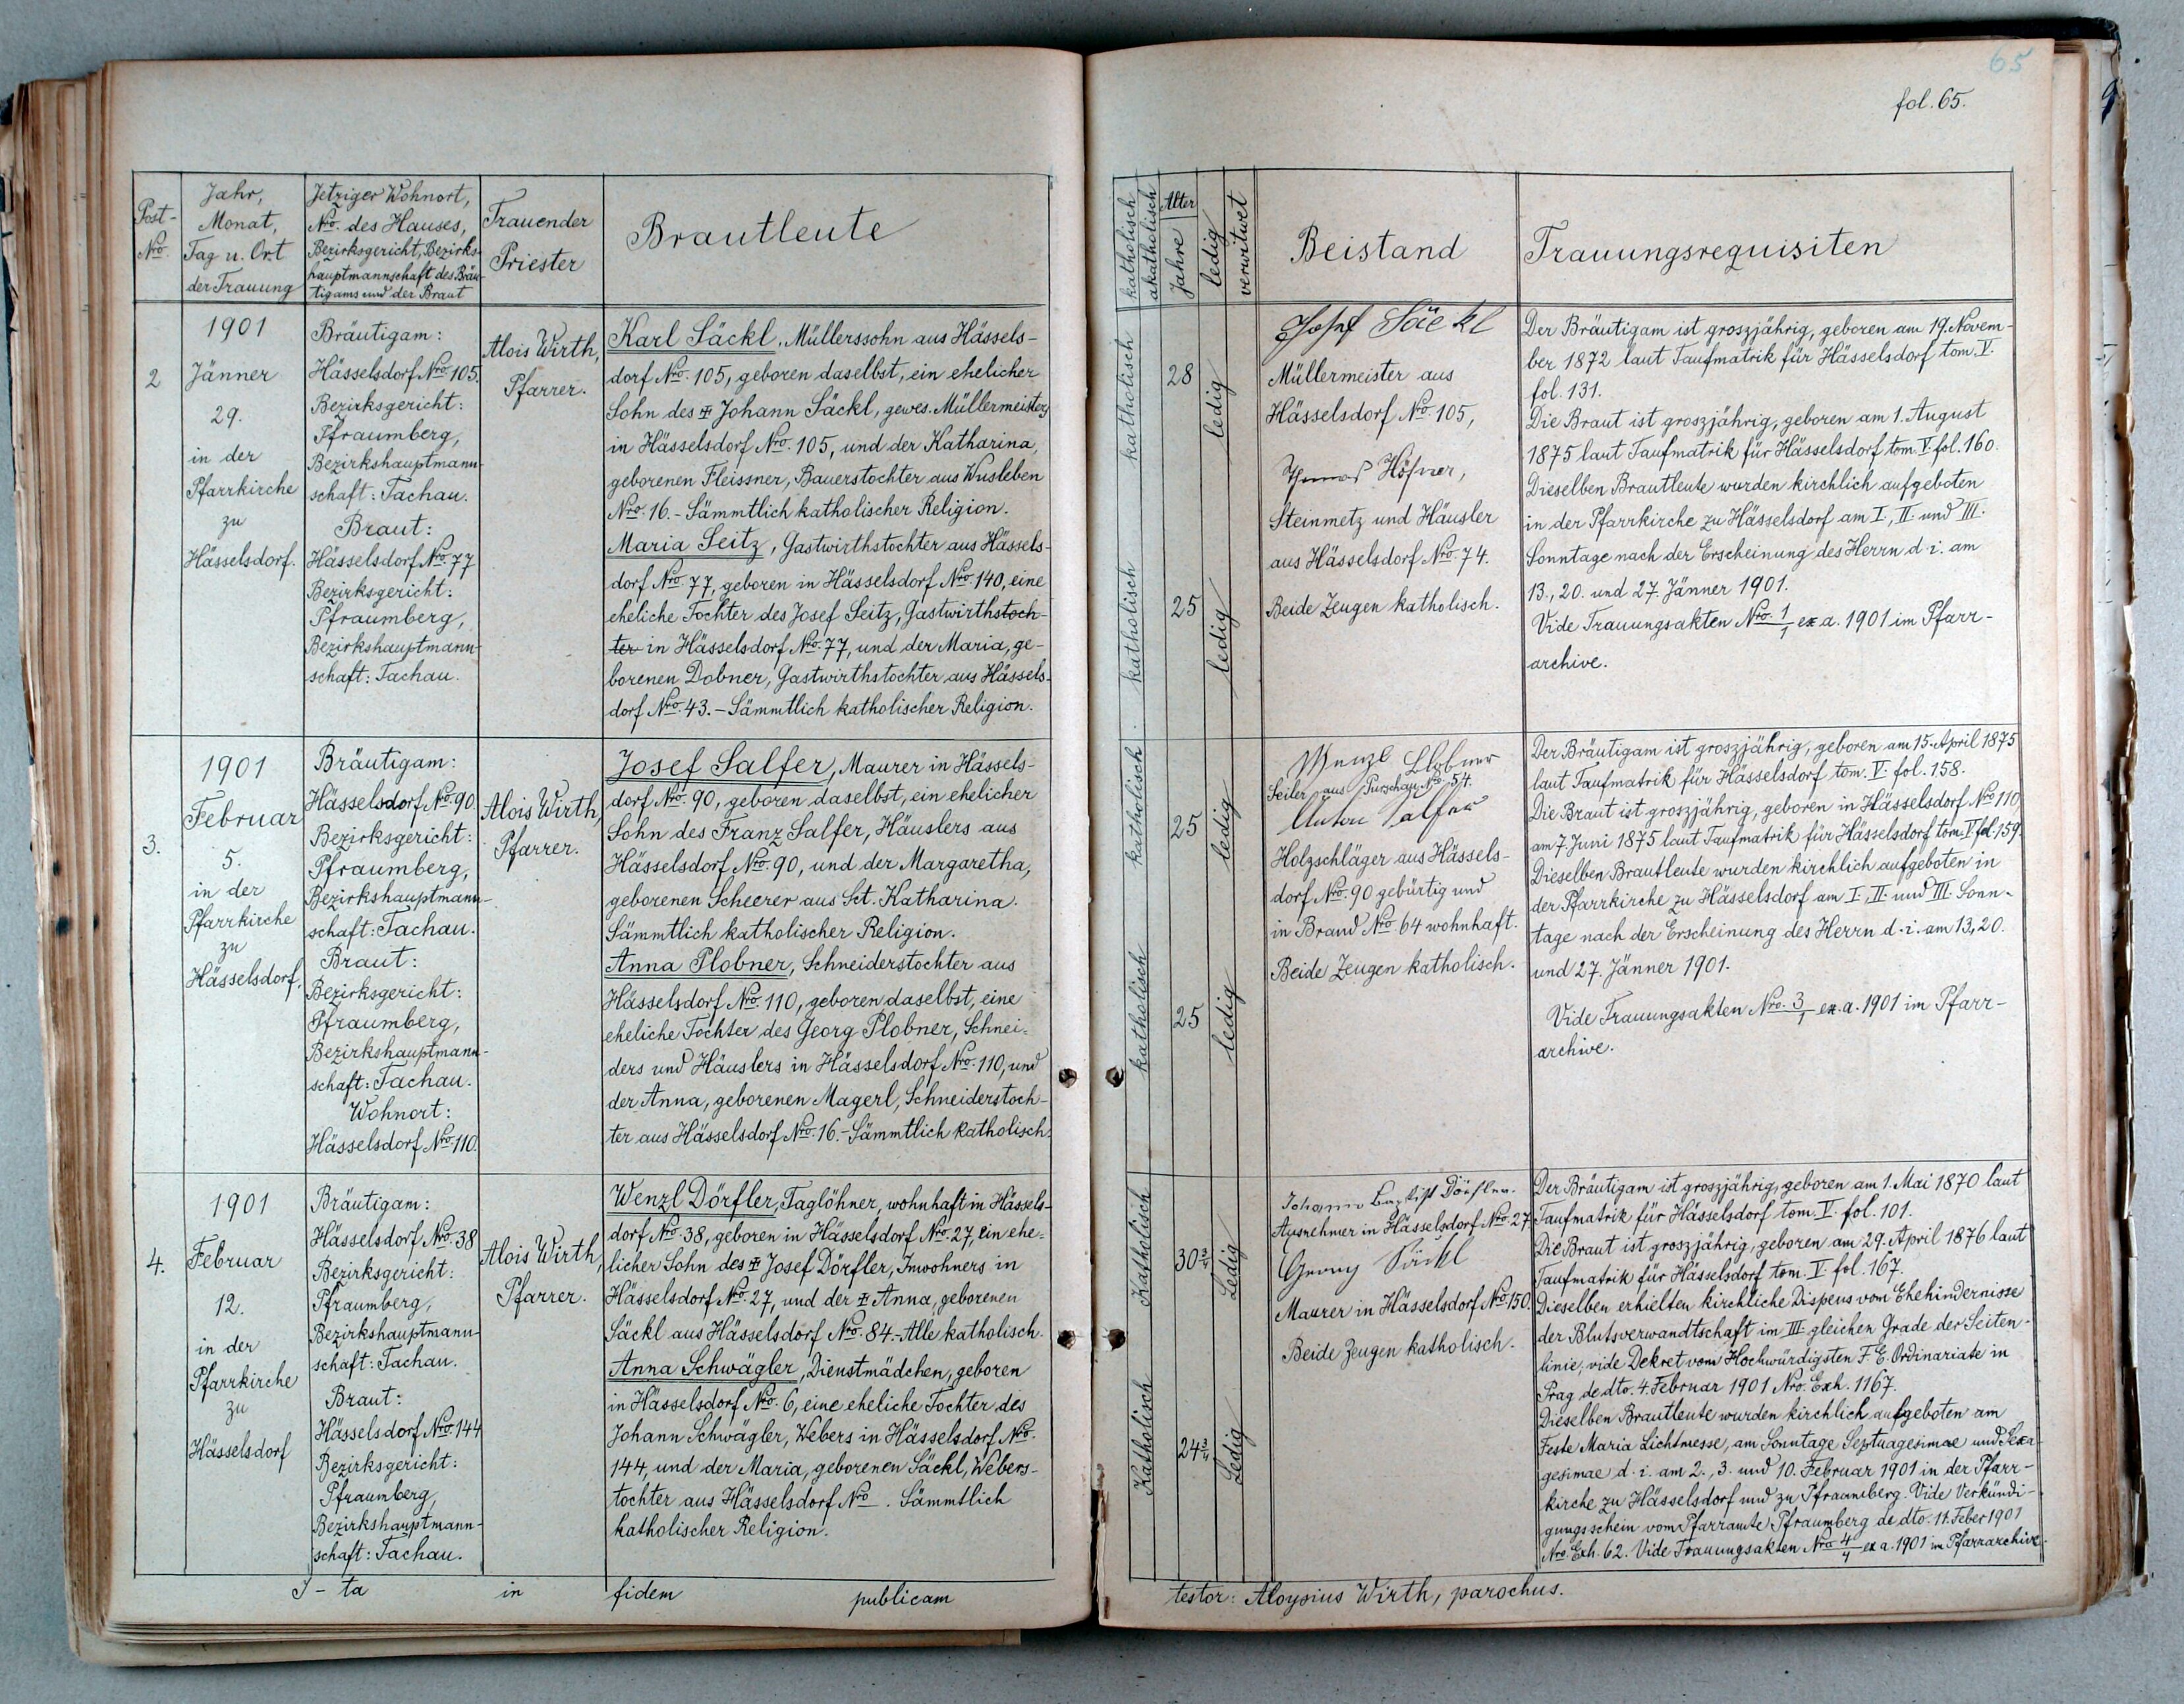 65
fol. 65.
Post-
Nro.
Jahr,
Monat,
Tag u. Ort
der Trauung
Jetziger Wohnort,
Nro. des Hauses,
Bezirksgericht, Bezirks-
hauptmannschaft des Bräu-
tigams und der Braut
Trauender
Priester
Brautleute
2
1901
Jänner
29.
in der
Pfarrkirche
zu
Hässelsdorf.
Bräutigam:
Hässelsdorf Nro. 105.
Bezirksgericht:
Pfraumberg,
Bezirkshauptmann-
schaft: Tachau.
Braut:
Hässelsdorf Nro. 77
Bezirksgericht:
Pfraumberg,
Bezirkshauptmann-
schaft: Tachau.
Alois Wirth,
Pfarrer.
Karl Säckl, Müllerssohn aus Hässels-
dorf Nro. 105, geboren daselbst, ein ehelicher
Sohn des Johann Säckl, gewes. Müllermeisters
in Hässelsdorf Nro. 105, und der Katharina,
geborenen Fleissner, Bauerstochter aus Wusleben
Nro. 16. - Sämmtlich katholischer Religion.
Maria Seitz, Gastwirthstochter aus Hässels-
dorf Nro. 77, geboren in Hässelsdorf Nro. 140, eine
eheliche Tochter des Josef Seitz, Gastwirthstoch-
ter in Hässelsdorf Nro. 77, und der Maria, ge-
borenen Dobner, Gastwirthstochter aus Hässels-
dorf Nro. 43. - Sämmtlich katholischer Religion.
3.
1901
Februar
5.
in der
Pfarrkirche
zu
Hässelsdorf.
Bräutigam:
Hässelsdorf Nro. 90.
Bezirksgericht:
Pfraumberg,
Bezirkshauptmann-
schaft: Tachau.
Braut:
Bezirksgericht:
Pfraumberg,
Bezirkshauptmann-
schaft: Tachau.
Wohnort:
Hässelsdorf Nro. 110.
Alois Wirth,
Pfarrer.
Josef Salfer, Maurer in Hässels-
dorf Nro. 90, geboren daselbst, ein ehelicher
Sohn des Franz Salfer, Häuslers aus
Hässelsdorf Nro. 90, und der Margaretha,
geborenen Scheerer aus Sct. Katharina.
Sämmtlich katholischer Religion.
Anna Plobner, Schneiderstochter aus
Hässelsdorf Nro. 110, geboren daselbst, eine
eheliche Tochter des Georg Plobner, Schnei-
ders und Häuslers in Hässelsdorf Nro. 110, und
der Anna, geborenen Magerl, Schneiderstoch-
ter aus Hässelsdorf Nro. 16. - Sämmtlich katholisch.
4.
1901
Februar
12.
in der
Pfarrkirche
zu
Hässelsdorf
Bräutigam:
Hässelsdorf Nro. 38
Bezirksgericht:
Pfraumberg,
Bezirkshauptmann-
schaft: Tachau.
Braut:
Hässelsdorf Nro. 144
Bezirksgericht:
Pfraumberg,
Bezirkshauptmann-
schaft: Tachau.
Alois Wirth,
Pfarrer.
Wenzl Dörfler, Taglöhner, wohnhaft in Hässels-
dorf Nro. 38, geboren in Hässelsdorf Nro. 27, ein ehe-
licher Sohn des Josef Dörfler, Inwohners in
Hässelsdorf Nro. 27, und der Anna, geborenen
Säckl aus Hässelsdorf Nro. 84. - Alle katholisch.
Anna Schwägler, Dienstmädchen, geboren
in Hässelsdorf Nro. 6, eine eheliche Tochter des
Johann Schwägler, Webers in Hässelsdorf Nro.
144, und der Maria, geborenen Säckl, Webers-
tochter aus Hässelsdorf Nro. . Sämmtlich
katholischer Religion.
I - ta in fidem publicam
katholisch
akatholisch
Alter
Jahre
ledig
verwitwet
Beistand
Trauungsrequisiten
katholisch
28
ledig
katholisch
25
ledig
Josef Säckl
Müllermeister aus
Hässelsdorf Nro. 105,
Höfner,
Steinmetz und Häusler
aus Hässelsdorf Nro. 74.
Beide Zeugen katholisch.
Der Bräutigam ist groszjährig, geboren am 19. Novem-
ber 1872 laut Taufmatrik für Hässelsdorf tom. V.
fol. 131.
Die Braut ist groszjährig, geboren am 1. August
1875 laut Taufmatrik für Hässelsdorf tom. V. fol. 160.
Dieselben Brautleute wurden kirchlich aufgeboten
in der Pfarrkirche zu Hässelsdorf am I., II. und III.
Sonntage nach der Erscheinung des Herrn d. i. am
13., 20. und 27. Jänner 1901.
Vide Trauungsakten Nro. 1/1 ex a. 1901 im Pfarr-
archive.
katholisch
25
ledig
katholisch
25
ledig
Wenzl Plobner
Seiler aus Purschau Nro. 54.
Anton Salfer
Holzschläger aus Hässels-
dorf Nro. 90 gebürtig und
in Brand Nro. 64 wohnhaft.
Beide Zeugen katholisch.
Der Bräutigam ist groszjährig, geboren am 15. April 1875
laut Taufmatrik für Hässelsdorf tom. V. fol. 158.
Die Braut ist groszjährig, geboren in Hässelsdorf Nro. 110
am 7. Juni 1875 laut Taufmatrik für Hässelsdorf tom. V. fol. 159.
Dieselben Brautleute wurden kirchlich aufgeboten in
der Pfarrkirche zu Hässelsdorf am I., II. und III. Sonn-
tage nach der Erscheinung des Herrn d. i. am 13., 20.
und 27. Jänner 1901.
Vide Trauungsakten Nro. 3/1 ex a. 1901 im Pfarr-
archive.
Katholisch
30 3/4
Ledig
Katholisch
24 3/4
Ledig
Johann Baptist Dörfler.
Ausnehmer in Hässelsdorf Nro. 27
Georg Säckl
Maurer in Hässelsdorf Nro. 150.
Beide Zeugen katholisch.
Der Bräutigam ist groszjährig, geboren am 1. Mai 1870 laut
Taufmatrik für Hässelsdorf tom. V. fol. 101.
Die Braut ist groszjährig, geboren am 29. April 1876 laut
Taufmatrik für Hässelsdorf tom. V. fol. 167.
Dieselben erhielten kirchliche Dispens vom Ehehindernisse
der Blutsverwandtschaft im III gleichen Grade der Seiten-
linie, vide Dekret vom Hochwürdigsten F. E. Ordinariate in
Prag de dto. 4. Februar 1901 Nro. Exh. 1167.
Dieselben Brautleute wurden kirchlich aufgeboten am
Feste Maria Lichtmesse, am Sonntage Septuagesimae und Sexa-
gesimae d. i. am 2., 3. und 10. Februar 1901 in der Pfarr-
kirche zu Hässelsdorf und zu Pfraumberg. Vide Verkündi-
gungsschein vom Pfarramte Pfraumberg de dto. 11. Feber 1901
Nro. Exh. 62. Vide Trauungsakten Nro. 4/4 ex a. 1901 im Pfarrarchive.
testor: Aloysius Wirth, parochus.